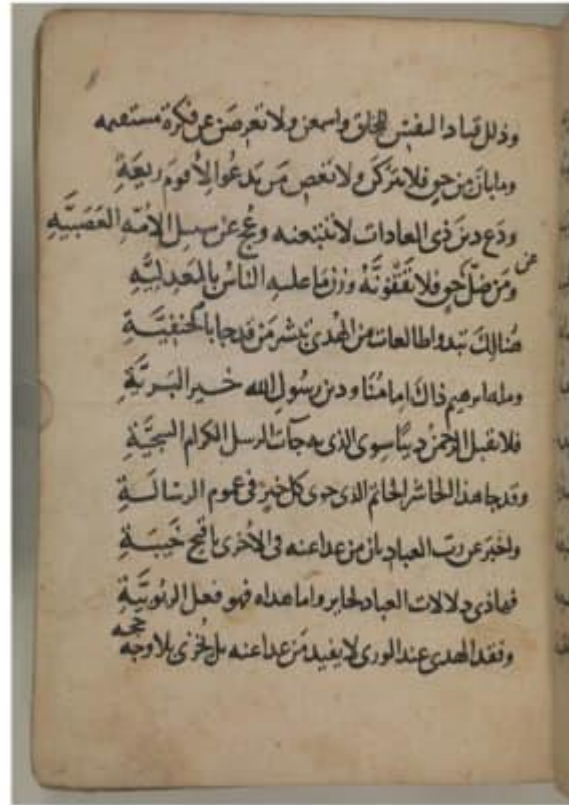 وذلل قياد النفس للخلق واسمعن ولا تعرضن عن فكرة مستقيمه
وما بان من حق فلا تتركن ولا تعص من يدعوا لاقوم ريعة
ودع دين ذي العادات لا تتبعنه وعج عن سبيل الامة العصبية
ومن ضل عن حق فلا تقفونه وزن ما عليه الناس بالمعدلية
هنالك تبدوا طالعات من الهدى تبشر من قد جا بالحنيفية
وملة ابرهيم ذاك امامنا ودين رسول الله خير البرية
فلا يقبل الرحمن دينا سوى الذي به جآت الرسل الكرام السجية
وقد جا هذا الحاشر الخاتم الذي حوى كل خير في عموم الرسالة
واخبر عن رب العباد بان من عدا عنه في الاخرى باقبح خيبة
فهاذي دلالات العباد لحاير واما هداه فهو فعل الربوبية
وفقد الهدى عند الورى لا يفيد من عدا عنه بل يخزى بلا وجه حجه